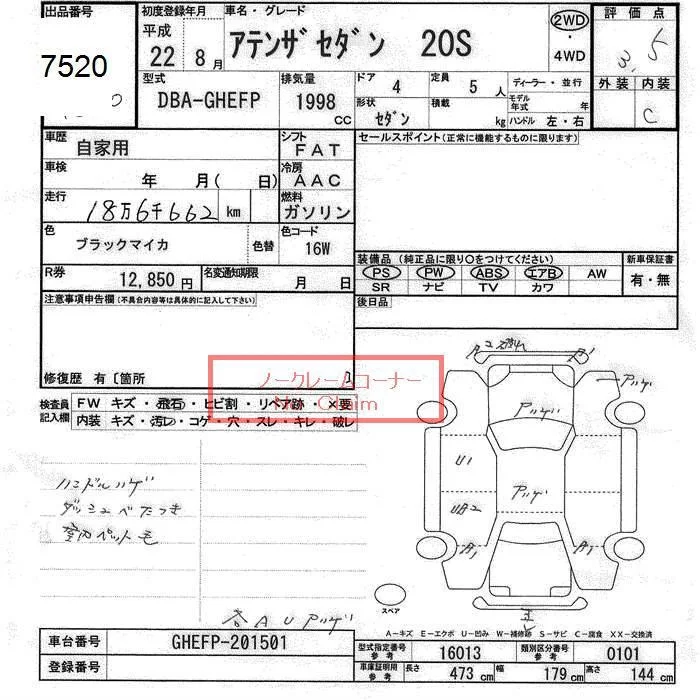 出品番号
7520
初度登録年月
平成
22 年 8 月
車名・グレード
アテンザセダン 20S
2WD
・
4WD
評価点
3.5
外装 内装
C
型式
DBA-GHEFP
排気量
1998 cc
ドア 4
定員 5 人
ディーラー・並行
形状 セダン
積載 kg
モデル年式 年
ハンドル 左・右
車歴
自家用
シフト
FAT
車検
年 月( 日)
冷房
AAC
走行
18万6千662 km
燃料
ガソリン
色
ブラックマイカ
色替
色コード
16W
R券
12,850 円
名変通知期限
月 日
セールスポイント(正常に機能するものに限ります)
装備品(純正品に限り○をつけてください)
新車保証書
PS PW ABS エアB AW
有・無
SR ナビ TV カワ
後日品
注意事項申告欄(不具合内容等は具体的に記入して下さい)
修復歴 有〔箇所 〕
ノークレームコーナー
No Claim
検査員記入欄
FW キズ・飛石・ヒビ割・リペア跡・×要
内装 キズ・汚レ・コゲ・穴・スレ・キレ・破レ
ハンドルハゲ
ダッシュベたつき
室内ペット毛
各AUアツゲ
A2 割れ A1
アツゲ
アツゲ
U1
アツゲ
UB2
A1 A1
スペア
A-キズ E-エクボ U-凹み W-補修跡 S-サビ C-腐食 XX-交換済
車台番号
GHEFP-201501
登録番号
型式指定番号 参考 16013
類別区分番号 参考 0101
車庫証明用 参考
長さ 473 cm
幅 179 cm
高さ 144 cm